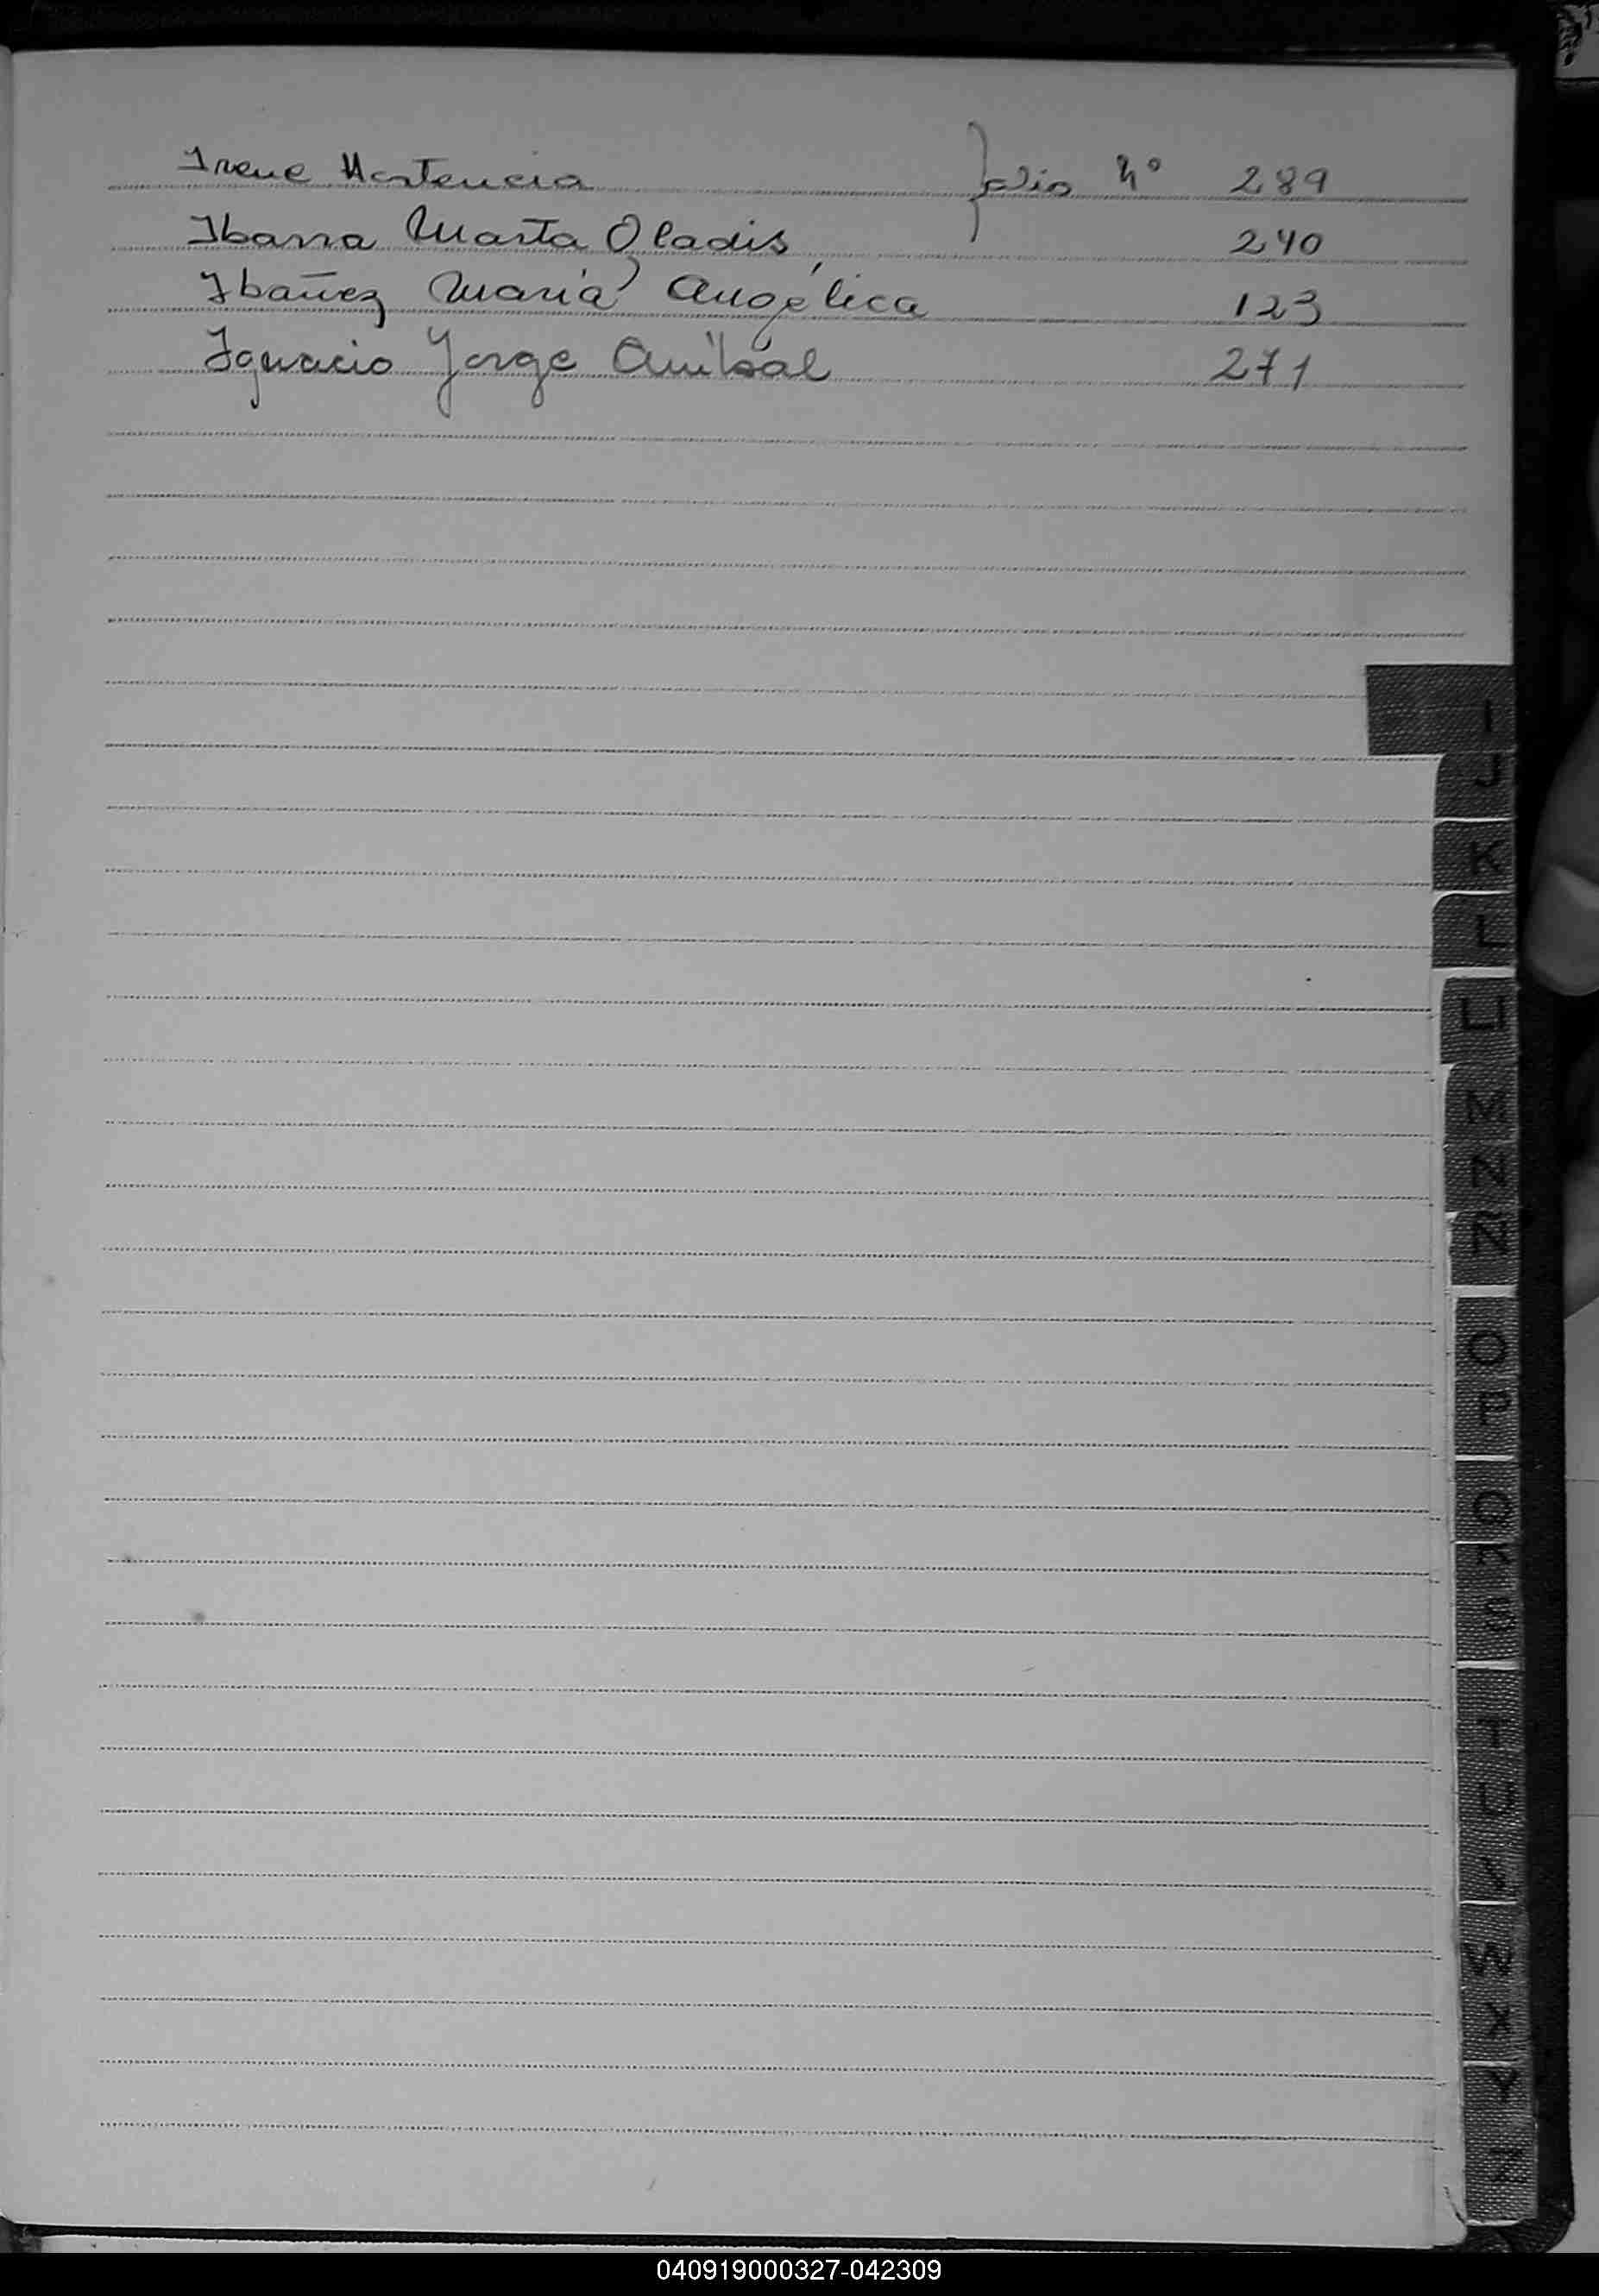 Irene Hortencia folio Nº 289
Ibarra Marta Gladis 240
Ibañez María Angélica 123
Ignacio Jorge Aníbal 271
I
J
K
L
LL
M
N
Ñ
O
P
Q
R
S
T
U
V
W
X
Y
Z
040919000327-042309